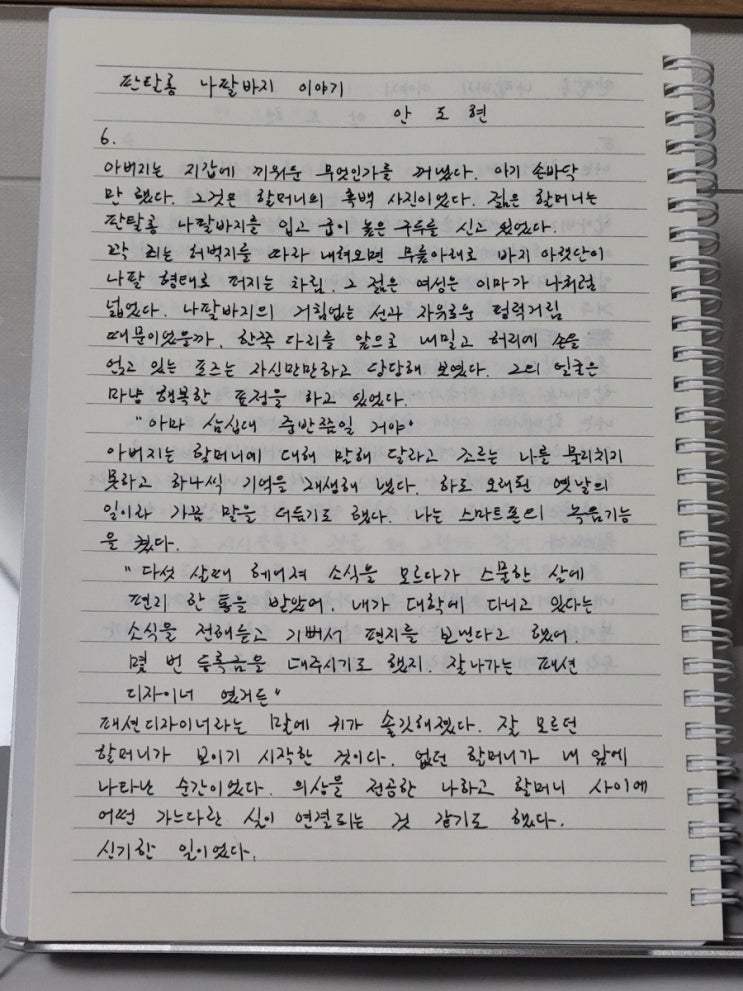 판탈롱 나팔바지 이야기
안 도 현
6.
아버지는 지갑에 끼워둔 무엇인가를 꺼냈다. 아기 손바닥
만 했다. 그것은 할머니의 흑백 사진이었다. 젊은 할머니는
판탈롱 나팔바지를 입고 굽이 높은 구두를 신고 있었다.
꽉 죄는 허벅지를 따라 내려오면 무릎아래로 바지 아랫단이
나팔 형태로 퍼지는 차림. 그 젊은 여성은 이마가 나처럼
넓었다. 나팔바지의 거침없는 선과 자유로운 펄럭거림
때문이었을까. 한쪽 다리를 앞으로 내밀고 허리에 손을
얹고 있는 포즈는 자신만만하고 당당해 보였다. 그의 얼굴은
마냥 행복한 표정을 하고 있었다.
"아마 삼십대 중반쯤일 거야"
아버지는 할머니에 대해 말해 달라고 조르는 나를 물리치지
못하고 하나씩 기억을 재생해 냈다. 하도 오래된 옛날의
일이라 가끔 말을 더듬기도 했다. 나는 스마트폰의 녹음기능
을 켰다.
"다섯 살때 헤어져 소식을 모르다가 스물한 살에
편지 한 통을 받았어. 내가 대학에 다니고 있다는
소식을 전해듣고 기뻐서 편지를 보낸다고 했어.
몇 번 등록금을 대주시기도 했지. 잘나가는 패션
디자이너 였거든"
패션디자이너라는 말에 귀가 솔깃해졌다. 잘 모르던
할머니가 보이기 시작한 것이다. 없던 할머니가 내 앞에
나타난 순간이었다. 의상을 전공한 나하고 할머니 사이에
어떤 가느다란 실이 연결되는 것 같기도 했다.
신기한 일이었다.